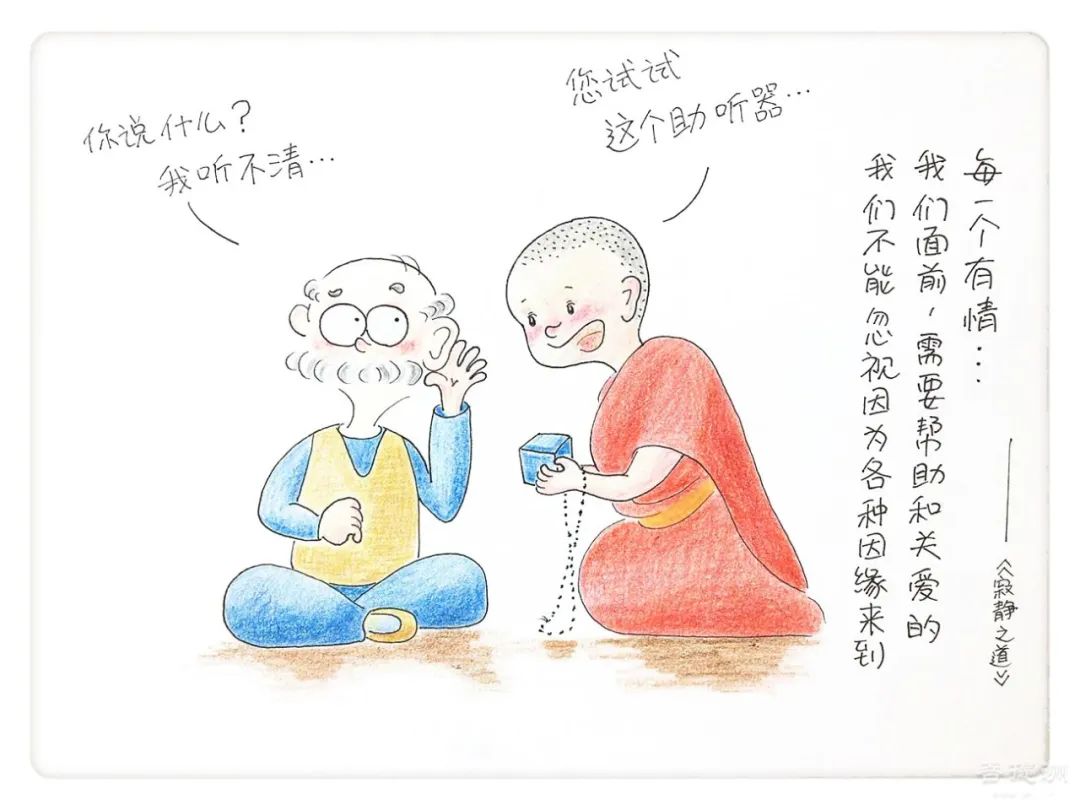 你说什么？
我听不清…
您试试
这个助听器…
我们不能忽视因为各种因缘来到
我们面前，需要帮助和关爱的
每一个有情…
——《寂静之道》